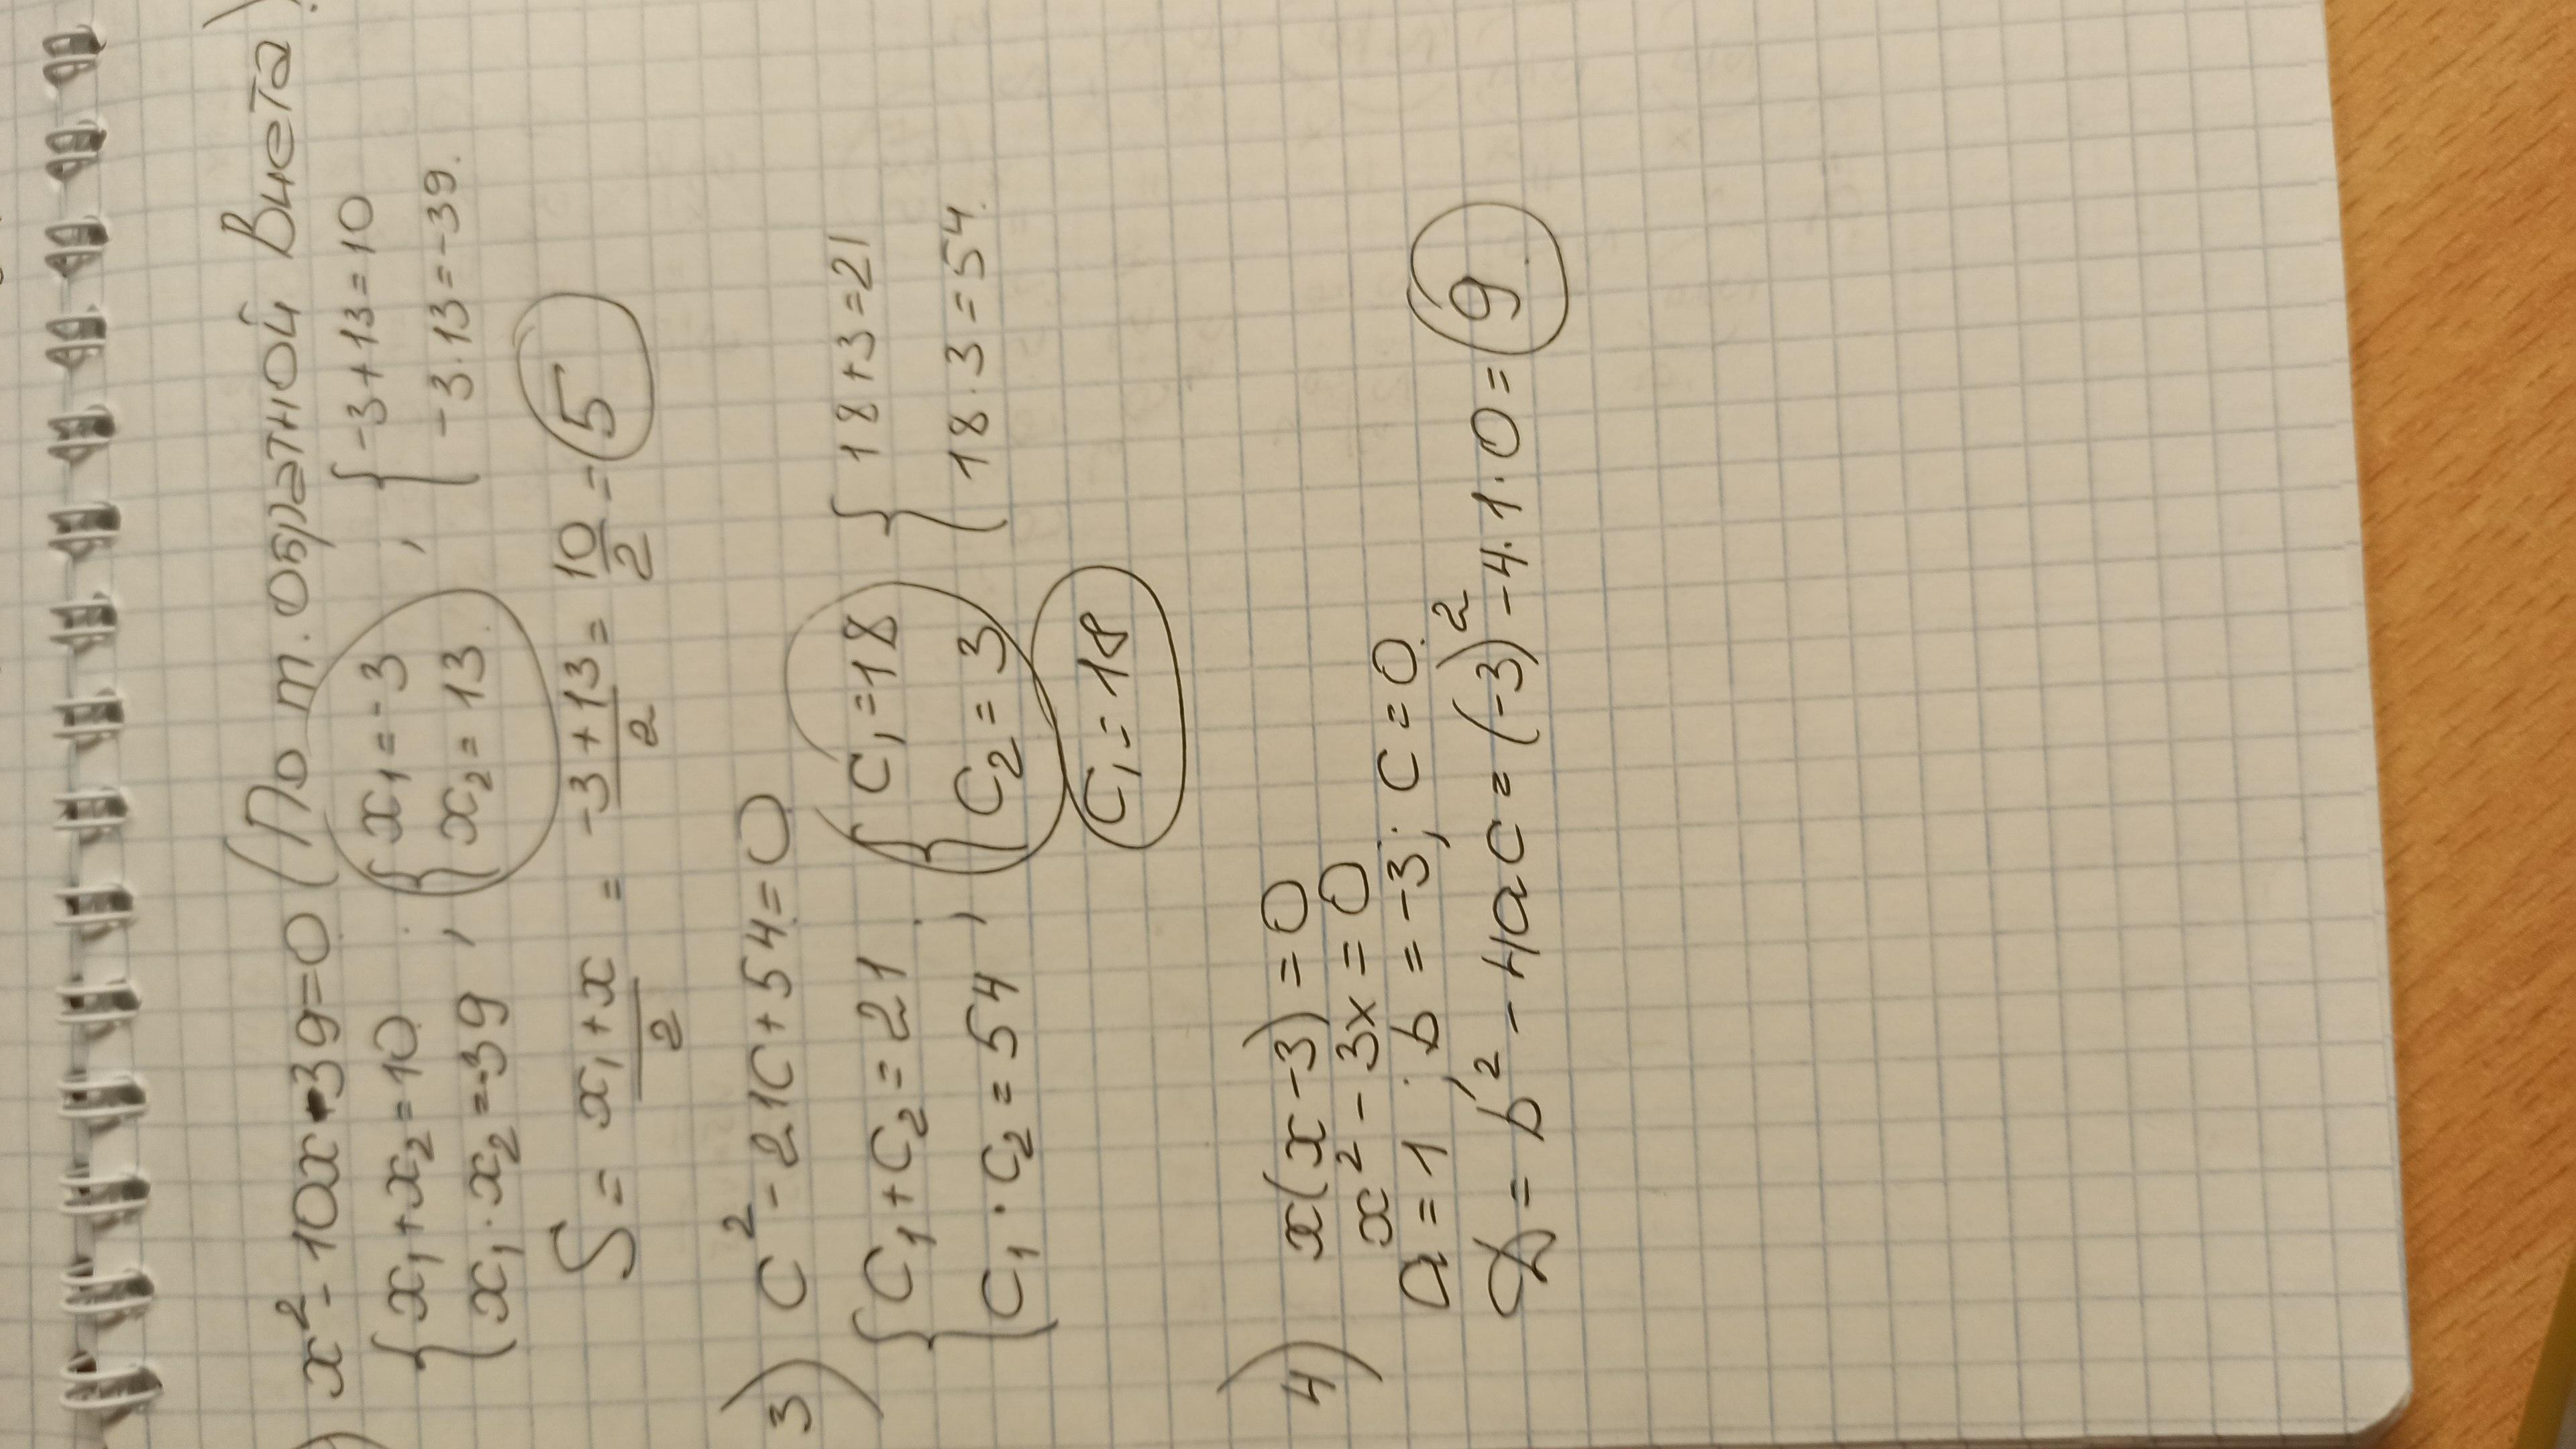 ) x² - 10x - 39 = 0 (По т. обратной Виета)
{ x₁ + x₂ = 10 { x₁ = -3 { -3 + 13 = 10
x₁ · x₂ = -39 , x₂ = 13 , -3 · 13 = -39.
S = (x₁ + x)/2 = (-3 + 13)/2 = 10/2 = 5
3) c² - 21c + 54 = 0
{ c₁ + c₂ = 21 ; { c₁ = 18 { 18 + 3 = 21
c₁ · c₂ = 54 c₂ = 3 18 · 3 = 54.
c₁ = 18
4) x(x - 3) = 0
x² - 3x = 0
a = 1 ; b = -3 ; c = 0.
D = b² - 4ac = (-3)² - 4 · 1 · 0 = 9